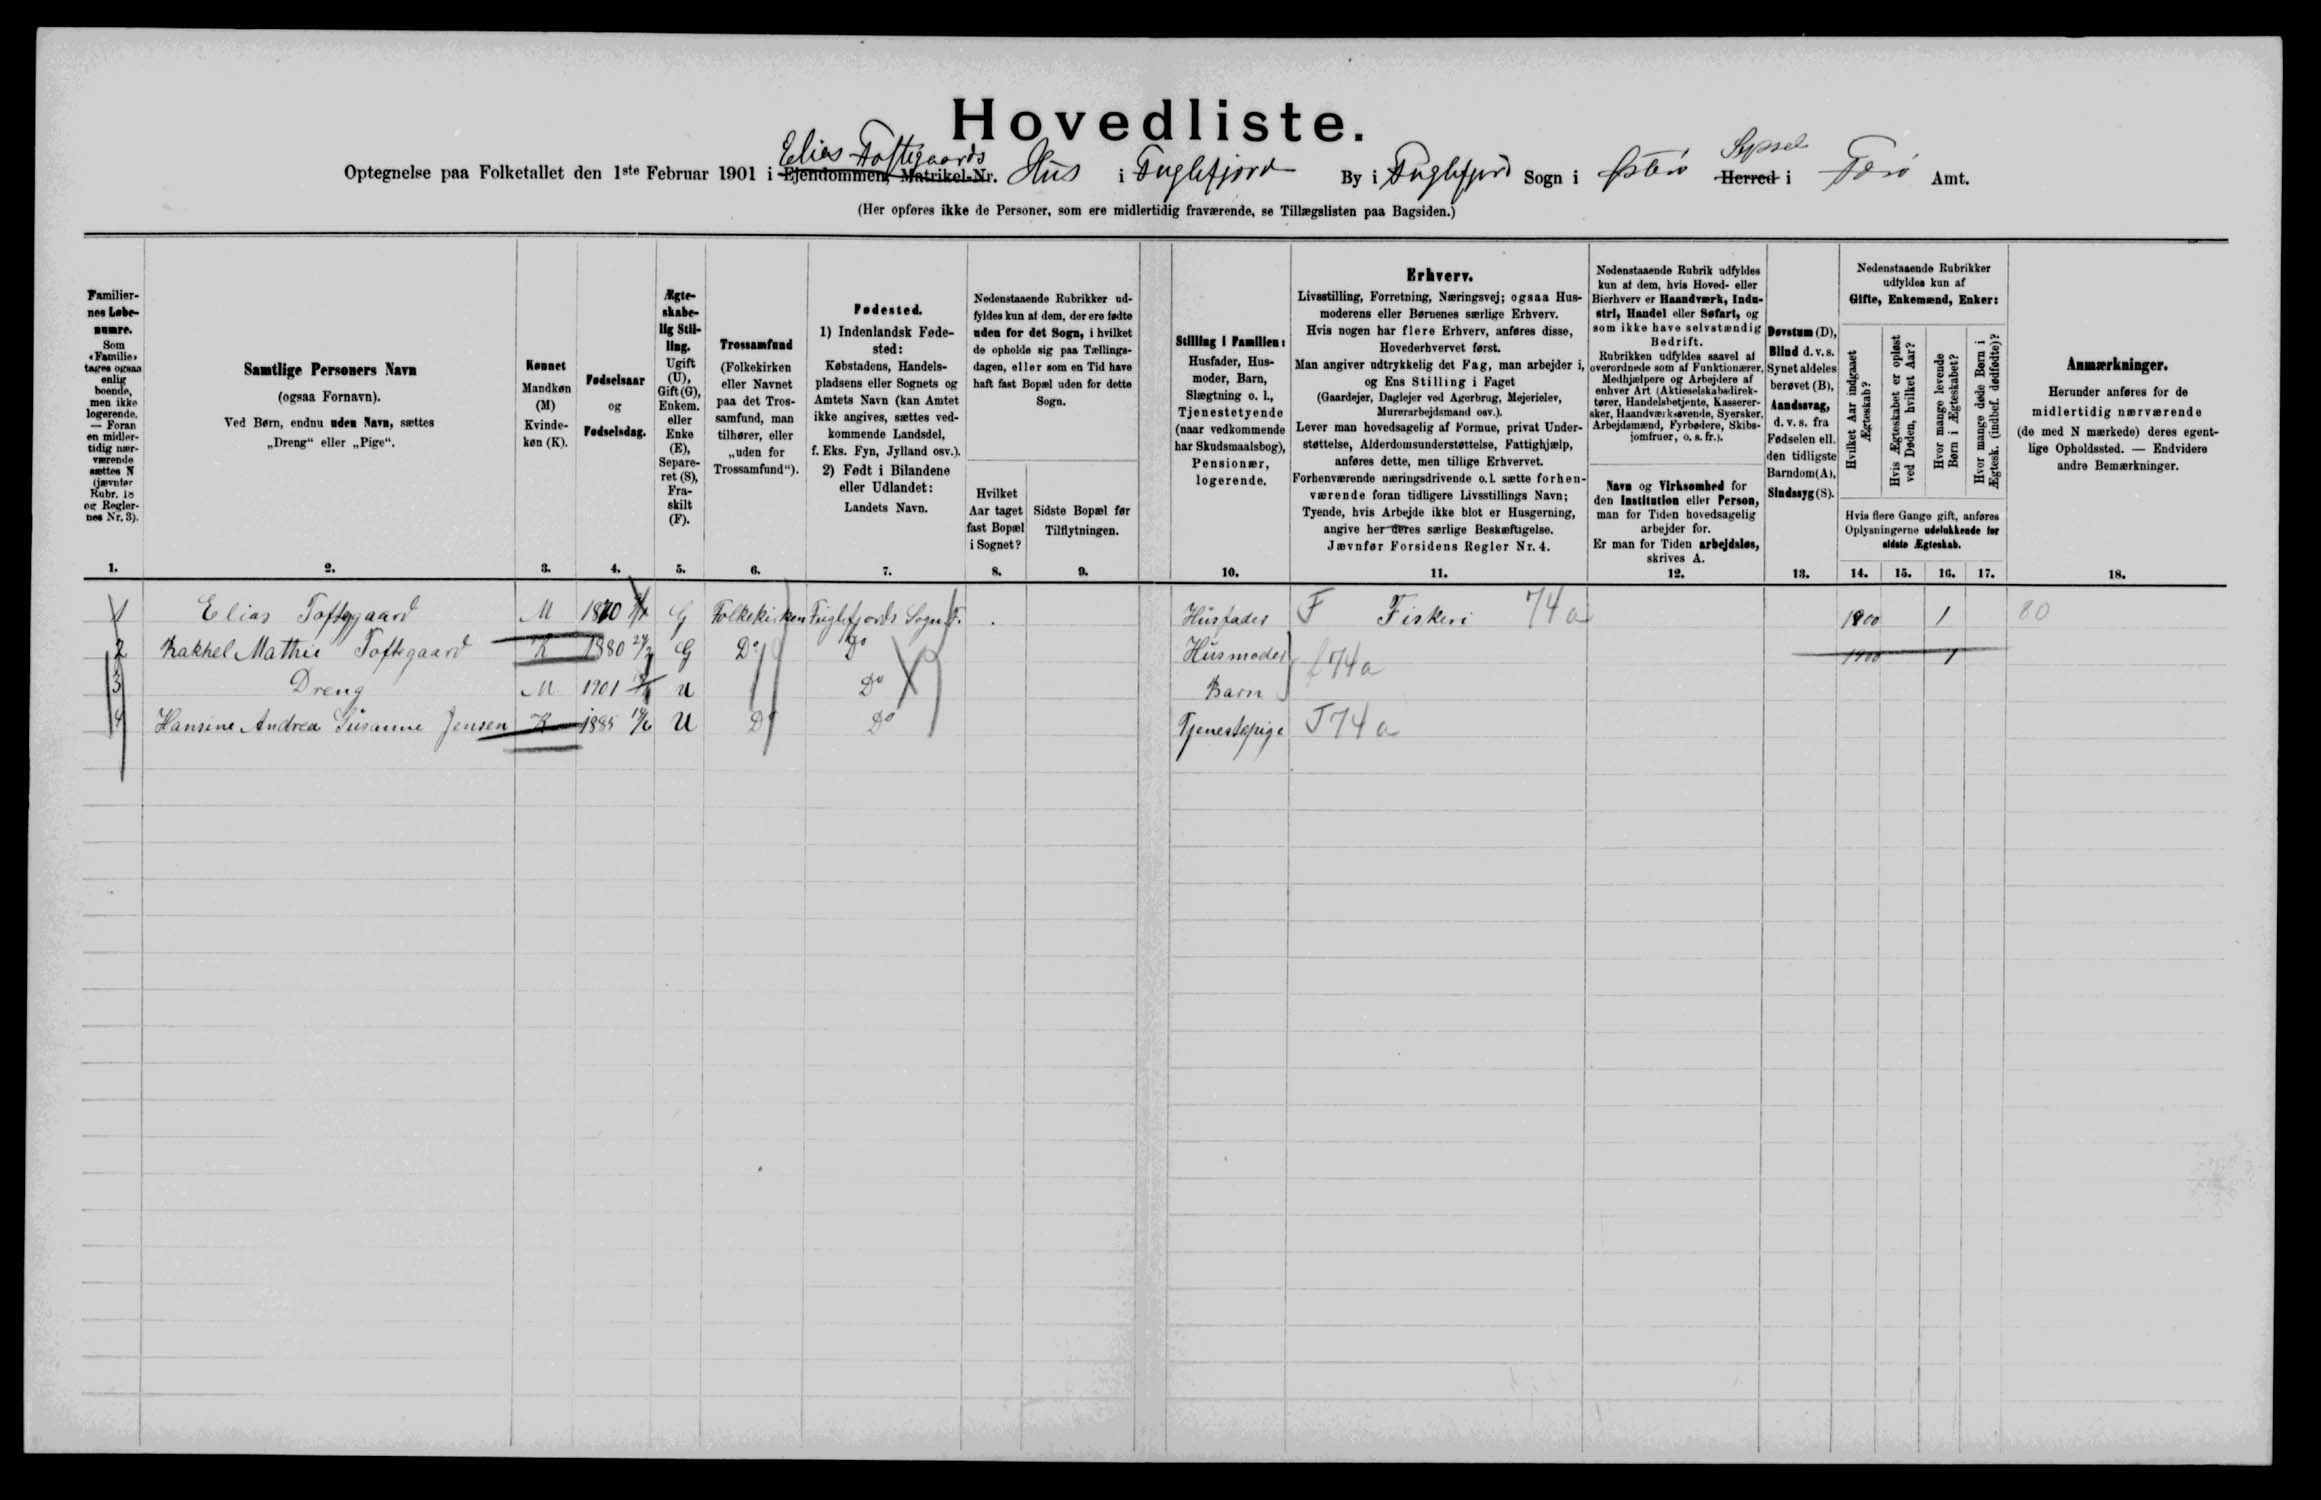 Hovedliste.
Optegnelse paa Folketallet den 1ste Februar 1901 i Ejendommen, Matrikel-Nr. Elias Toftegaards Hus i Fuglefjord By i Fuglefjord Sogn i Østerø Herred Syssel i Færø Amt.
(Her opføres ikke de Personer, som ere midlertidig fraværende, se Tillægslisten paa Bagsiden.)
Familier-
nes Løbe-
numre.
Som
«Familie»
tages ogsaa
enlig
boende,
men ikke
logerende.
— Foran
en midler-
tidig nær-
værende
sættes N
(jævnfør
Rubr. 18
og Regler-
nes Nr. 3).
1.
Samtlige Personers Navn
(ogsaa Fornavn).
Ved Børn, endnu uden Navn, sættes
„Dreng“ eller „Pige“.
2.
Kønnet
Mandkøn
(M)
Kvinde-
køn (K).
3.
Fødselsaar
og
Fødselsdag.
4.
Ægte-
skabe-
lig Stil-
ling.
Ugift
(U),
Gift (G),
Enkem.
eller
Enke
(E),
Separe-
ret (S),
Fra-
skilt
(F).
5.
Trossamfund
(Folkekirken
eller Navnet
paa det Tros-
samfund, man
tilhører, eller
„uden for
Trossamfund“).
6.
Fødested.
1) Indenlandsk Føde-
sted:
Købstadens, Handels-
pladsens eller Sognets og
Amtets Navn (kan Amtet
ikke angives, sættes ved-
kommende Landsdel,
f. Eks. Fyn, Jylland osv.).
2) Født i Bilandene
eller Udlandet:
Landets Navn.
7.
Nedenstaaende Rubrikker ud-
fyldes kun af dem, der ere fødte
uden for det Sogn, i hvilket
de opholde sig paa Tællings-
dagen, eller som en Tid have
haft fast Bopæl uden for dette
Sogn.
Hvilket
Aar taget
fast Bopæl
i Sognet?
8.
Sidste Bopæl før
Tilflytningen.
9.
Stilling i Familien:
Husfader, Hus-
moder, Barn,
Slægtning o. l.,
Tjenestetyende
(naar vedkommende
har Skudsmaalsbog),
Pensionær,
logerende.
10.
Erhverv.
Livsstilling, Forretning, Næringsvej; ogsaa Hus-
moderens eller Børnenes særlige Erhverv.
Hvis nogen har flere Erhverv, anføres disse,
Hovederhvervet først.
Man angiver udtrykkelig det Fag, man arbejder i,
og Ens Stilling i Faget
(Gaardejer, Daglejer ved Agerbrug, Mejerielev,
Murerarbejdsmand osv.).
Lever man hovedsagelig af Formue, privat Under-
støttelse, Alderdomsunderstøttelse, Fattighjælp,
anføres dette, men tillige Erhvervet.
Forhenværende næringsdrivende o. l. sætte forhen-
værende foran tidligere Livsstillings Navn;
Tyende, hvis Arbejde ikke blot er Husgerning,
angive her deres særlige Beskæftigelse.
Jævnfør Forsidens Regler Nr. 4.
11.
Nedenstaaende Rubrik udfyldes
kun af dem, hvis Hoved- eller
Bierhverv er Haandværk, Indu-
stri, Handel eller Søfart, og
som ikke have selvstændig
Bedrift.
Rubrikken udfyldes saavel af
overordnede som af Funktionærer,
Medhjælpere og Arbejdere af
enhver Art (Aktieselskabsdirek-
tører, Handelsbetjente, Kasserer-
sker, Haandværkssvende, Syersker,
Arbejdsmænd, Fyrbødere, Skibs-
jomfruer, o. s. fr.).
Navn og Virksomhed for
den Institution eller Person,
man for Tiden hovedsagelig
arbejder for.
Er man for Tiden arbejdsløs,
skrives A.
12.
Døvstum (D),
Blind d. v. s.
Synet aldeles
berøvet (B),
Aandssvag,
d. v. s. fra
Fødselen ell.
den tidligste
Barndom (A),
Sindssyg (S).
13.
Nedenstaaende Rubrikker
udfyldes kun af
Gifte, Enkemænd, Enker:
Hvilket Aar indgaaet
Ægteskab?
Hvis Ægteskabet er opløst
ved Døden, hvilket Aar?
Hvor mange levende
Børn i Ægteskabet?
Hvor mange døde Børn i
Ægtesk. (indbef. dødfødte)?
Hvis flere Gange gift, anføres
Oplysningerne udelukkende for
sidste Ægteskab.
14. 15. 16. 17.
Anmærkninger.
Herunder anføres for de
midlertidig nærværende
(de med N mærkede) deres egent-
lige Opholdssted. — Endvidere
andre Bemærkninger.
18.
1 Elias Toftegaard M 1870 G Folkekirken Fuglefjords Sogn F. Husfader F Fiskeri 74a 1900 1 80
2 Rakkel Mathie Toftegaard K 1880 G Do Do Husmoder f74a 1900 1
3 Dreng M 1901 U Do Barn
4 Hansine Andrea Susanne Jensen K 1885 U Do Do Tjenestepige T74a